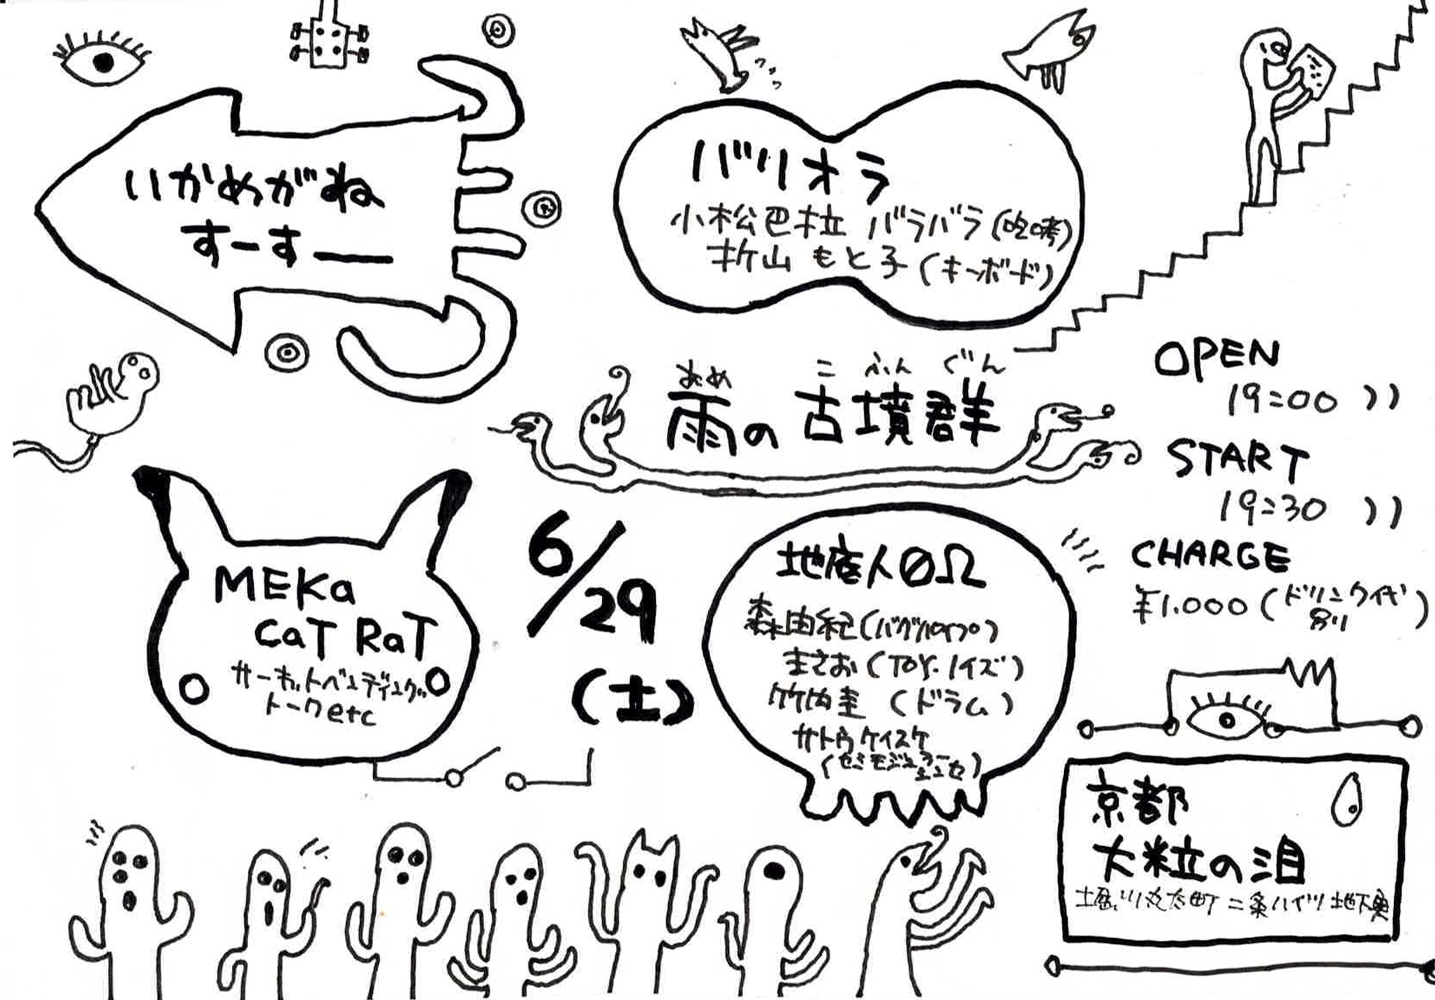 いかめがね
すーすー
バリオラ
小松巴拉 バラバラ(吃考)
折山 もと子(キーボード)
あめ こ ふん ぐん
雨の古墳群
OPEN
19:00 ))
START
19:30 ))
CHARGE
¥1.000(ドリンク代別)
6/29
(土)
MEKa
CaT RaT
サーキットベンディング
トークetc
地底人ØΩ
森由紀(バグパイプ)
まさお(TOY.ノイズ)
竹内圭(ドラム)
サトウケイスケ
(セミモジュラーシンセ)
京都
大粒の泪
堀川丸太町 二条ハイツ 地下奥